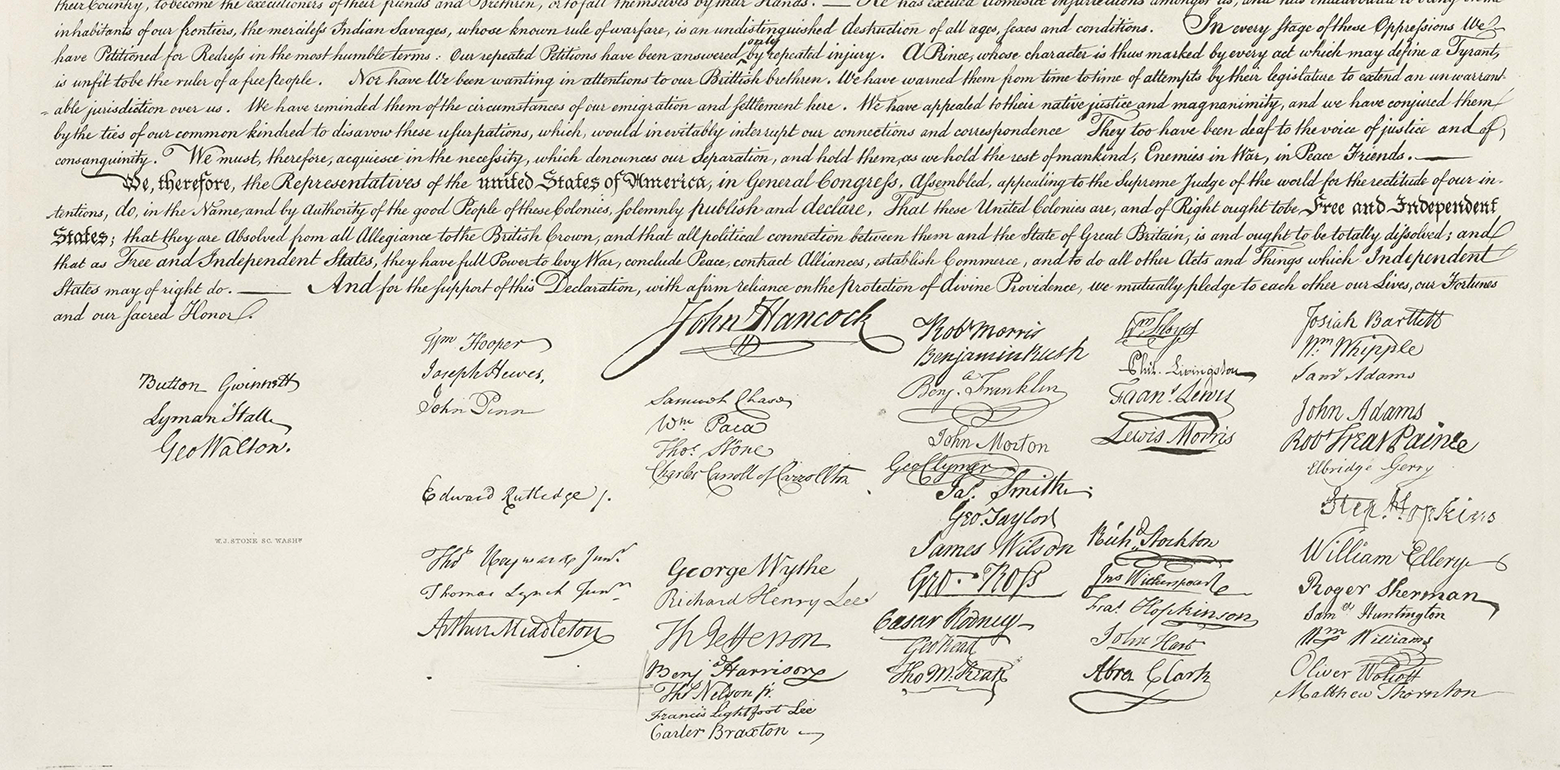 their Country, to become the executioners of their friends and Brethren, or to fall themselves by their Hands. — He has excited domestic insurrections amongst us, and has endeavoured to bring on the
inhabitants of our frontiers, the merciless Indian Savages, whose known rule of warfare, is an undistinguished destruction of all ages, sexes and conditions. In every stage of these Oppressions We
have Petitioned for Redress in the most humble terms: Our repeated Petitions have been answered only by repeated injury. A Prince, whose character is thus marked by every act which may define a Tyrant,
is unfit to be the ruler of a free people. Nor have We been wanting in attentions to our Brittish brethren. We have warned them from time to time of attempts by their legislature to extend an unwarrant-
able jurisdiction over us. We have reminded them of the circumstances of our emigration and settlement here. We have appealed to their native justice and magnanimity, and we have conjured them
by the ties of our common kindred to disavow these usurpations, which, would inevitably interrupt our connections and correspondence They too have been deaf to the voice of justice and of
consanguinity. We must, therefore, acquiesce in the necessity, which denounces our Separation, and hold them, as we hold the rest of mankind, Enemies in War, in Peace Friends. —
We, therefore, the Representatives of the united States of America, in General Congress, Assembled, appealing to the Supreme Judge of the world for the rectitude of our in-
tentions, do, in the Name, and by Authority of the good People of these Colonies, solemnly publish and declare, That these United Colonies are, and of Right ought to be Free and Independent
States; that they are Absolved from all Allegiance to the British Crown, and that all political connection between them and the State of Great Britain, is and ought to be totally dissolved; and
that as Free and Independent States, they have full Power to levy War, conclude Peace, contract Alliances, establish Commerce, and to do all other Acts and Things which Independent
States may of right do. — And for the support of this Declaration, with a firm reliance on the protection of divine Providence, we mutually pledge to each other our Lives, our Fortunes
and our sacred Honor.
Button Gwinnett
Lyman Hall
Geo Walton.
W. J. STONE SC. WASHN
Wm Hooper
Joseph Hewes,
John Penn
Edward Rutledge /.
Thos Heyward Junr.
Thomas Lynch Junr.
Arthur Middleton
John Hancock
Samuel Chase
Wm Paca
Thos Stone
Charles Carroll of Carrollton
George Wythe
Richard Henry Lee
Th Jefferson
Benj Harrison
Thos Nelson jr.
Francis Lightfoot Lee
Carter Braxton
Robt Morris
Benjamin Rush
Benja. Franklin
John Morton
Geo Clymer
Jas. Smith.
Geo. Taylor
James Wilson
Geo. Ross
Caesar Rodney
Geo Read
Tho M:Kean
Wm Floyd
Phil. Livingston
Frans. Lewis
Lewis Morris
Richd. Stockton
Jno Witherspoon
Fras. Hopkinson
John Hart
Abra Clark
Josiah Bartlett
Wm Whipple
Saml Adams
John Adams
Robt Treat Paine
Elbridge Gerry
Step. Hopkins
William Ellery
Roger Sherman
Samel Huntington
Wm Williams
Oliver Wolcott
Matthew Thornton